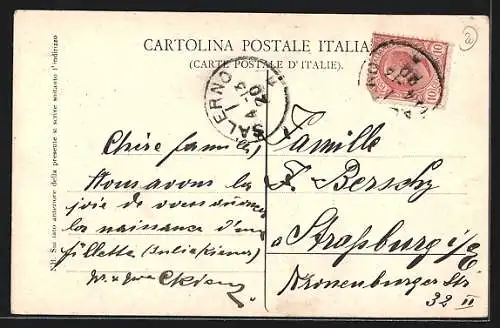 CARTOLINA POSTALE ITALIANA
(CARTE POSTALE D'ITALIE).
SALERNO
10
10
2
N.B. Sul lato anteriore della presente si scrive soltanto l'indirizzo
Chère famille,
Nous avons la
joie de vous annoncer
la naissance d'une
fillette
Famille
F. Berschy
Straßburg i/E
Kronenburger Str
32 II